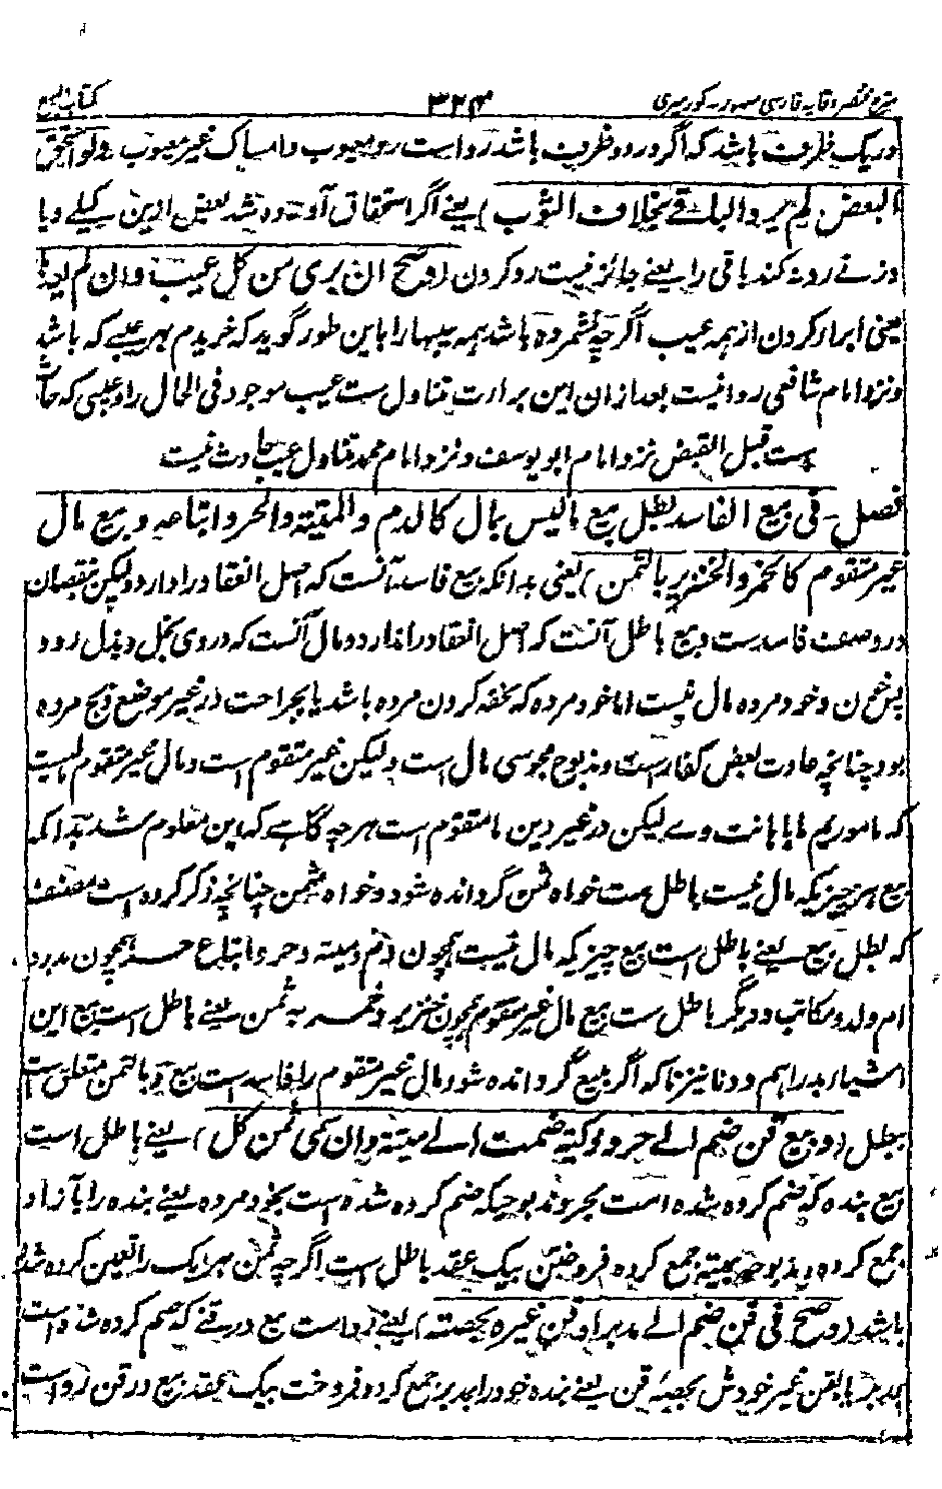 شرح مختصر وقایه فارسی ۳۲۴ کتاب البیع
در یک ظرف باشد که اگر در دو ظرف باشد رواست رد معیوب و امساک غیر معیوب (ولو استحق
البعض لم یرد الباقی بخلاف الثوب) یعنے اگر استحقاق آورده شد بعض ازین کیلے و یا
وزنے رد نه کند باقی را یعنے جائز نیست رد کردن (وصح ان بری من کل عیب وان لم
یعنی ابرا کردن از همه عیب اگرچه نشمرده باشد همه عیبها را باین طور گوید که خریدم بهر عیبے که باشد
و نزد امام شافعی روا نیست بعد ازان این براءت متناول ست عیب موجود فی الحال را و عیبی که حادث
است قبل القبض نزد امام ابو یوسف و نزد امام محمد تناول عیب حادث نیست
فصل فی بیع الفاسد بطل بیع ما لیس بمال کالدم والمیتة والحر واتباعه و بیع مال
غیر متقوم کالخمر والخنزیر بالثمن) یعنی بدانکه بیع فاسد آنست که اصل انعقاد را دارد و لیکن نقصان
در وصف فاسد ست و بیع باطل آنست که اصل انعقاد را ندارد و مال آنست که در وی بخل و بذل رود
پس خون و خود مرده مال نیست اما خود مرده که خفه کردن مرده باشد یا بجراحت در غیر موضع ذبح مرده
بود چنانچه عادت بعض کفار ست و مذبوح مجوسی مال است ولیکن غیر متقوم است و مال غیر متقوم آنست
که ماموریم ما باهانت وے لیکن در غیر دین ما متقوم است هرچه گاهے که این معلوم شد بدانکه
بیع هر چیزیکه مال نیست باطل ست خواه ثمن گردانده شود و خواه مثمن چنانچه ذکر کرده است مصنف
که بطل بیع یعنے باطل است بیع چیزیکه مال نیست همچون دم و میته و حر و اتباع حر همچون مدبر و
ام ولد و مکاتب و دیگر باطل ست بیع مال غیر متقوم همچون خنزیر و خمر به ثمن یعنے باطل است بیع این
اشیاء بدراهم و دنانیر تا که اگر مبیع گردانده شود مال غیر متقوم را فاسد ست بیع و بالثمن متعلق است
ببطل (و بیع قن ضم الے حر و ذکیة ضمت الے میتة وان سمی ثمن کل) یعنے باطل است
بیع بنده که ضم کرده شده است بحر و مذبوحیکه ضم کرده شده است بخود مرده یعنے بنده را با آزاد
جمع کرده و مذبوحه بمیته جمع کرده فروختن بیک عقد باطل است اگرچه ثمن هر یک را تعین کرده شده
باشد (وصح فی قن ضم الے مدبر او قن غیره بحصته) یعنے رواست بیع در قنے که ضم کرده شده است
بمدبر یا بقن غیر خودش بحصۀ قن یعنے بنده خود را بمدبر جمع کرده فروخت بیک عقد بیع در قن رواست